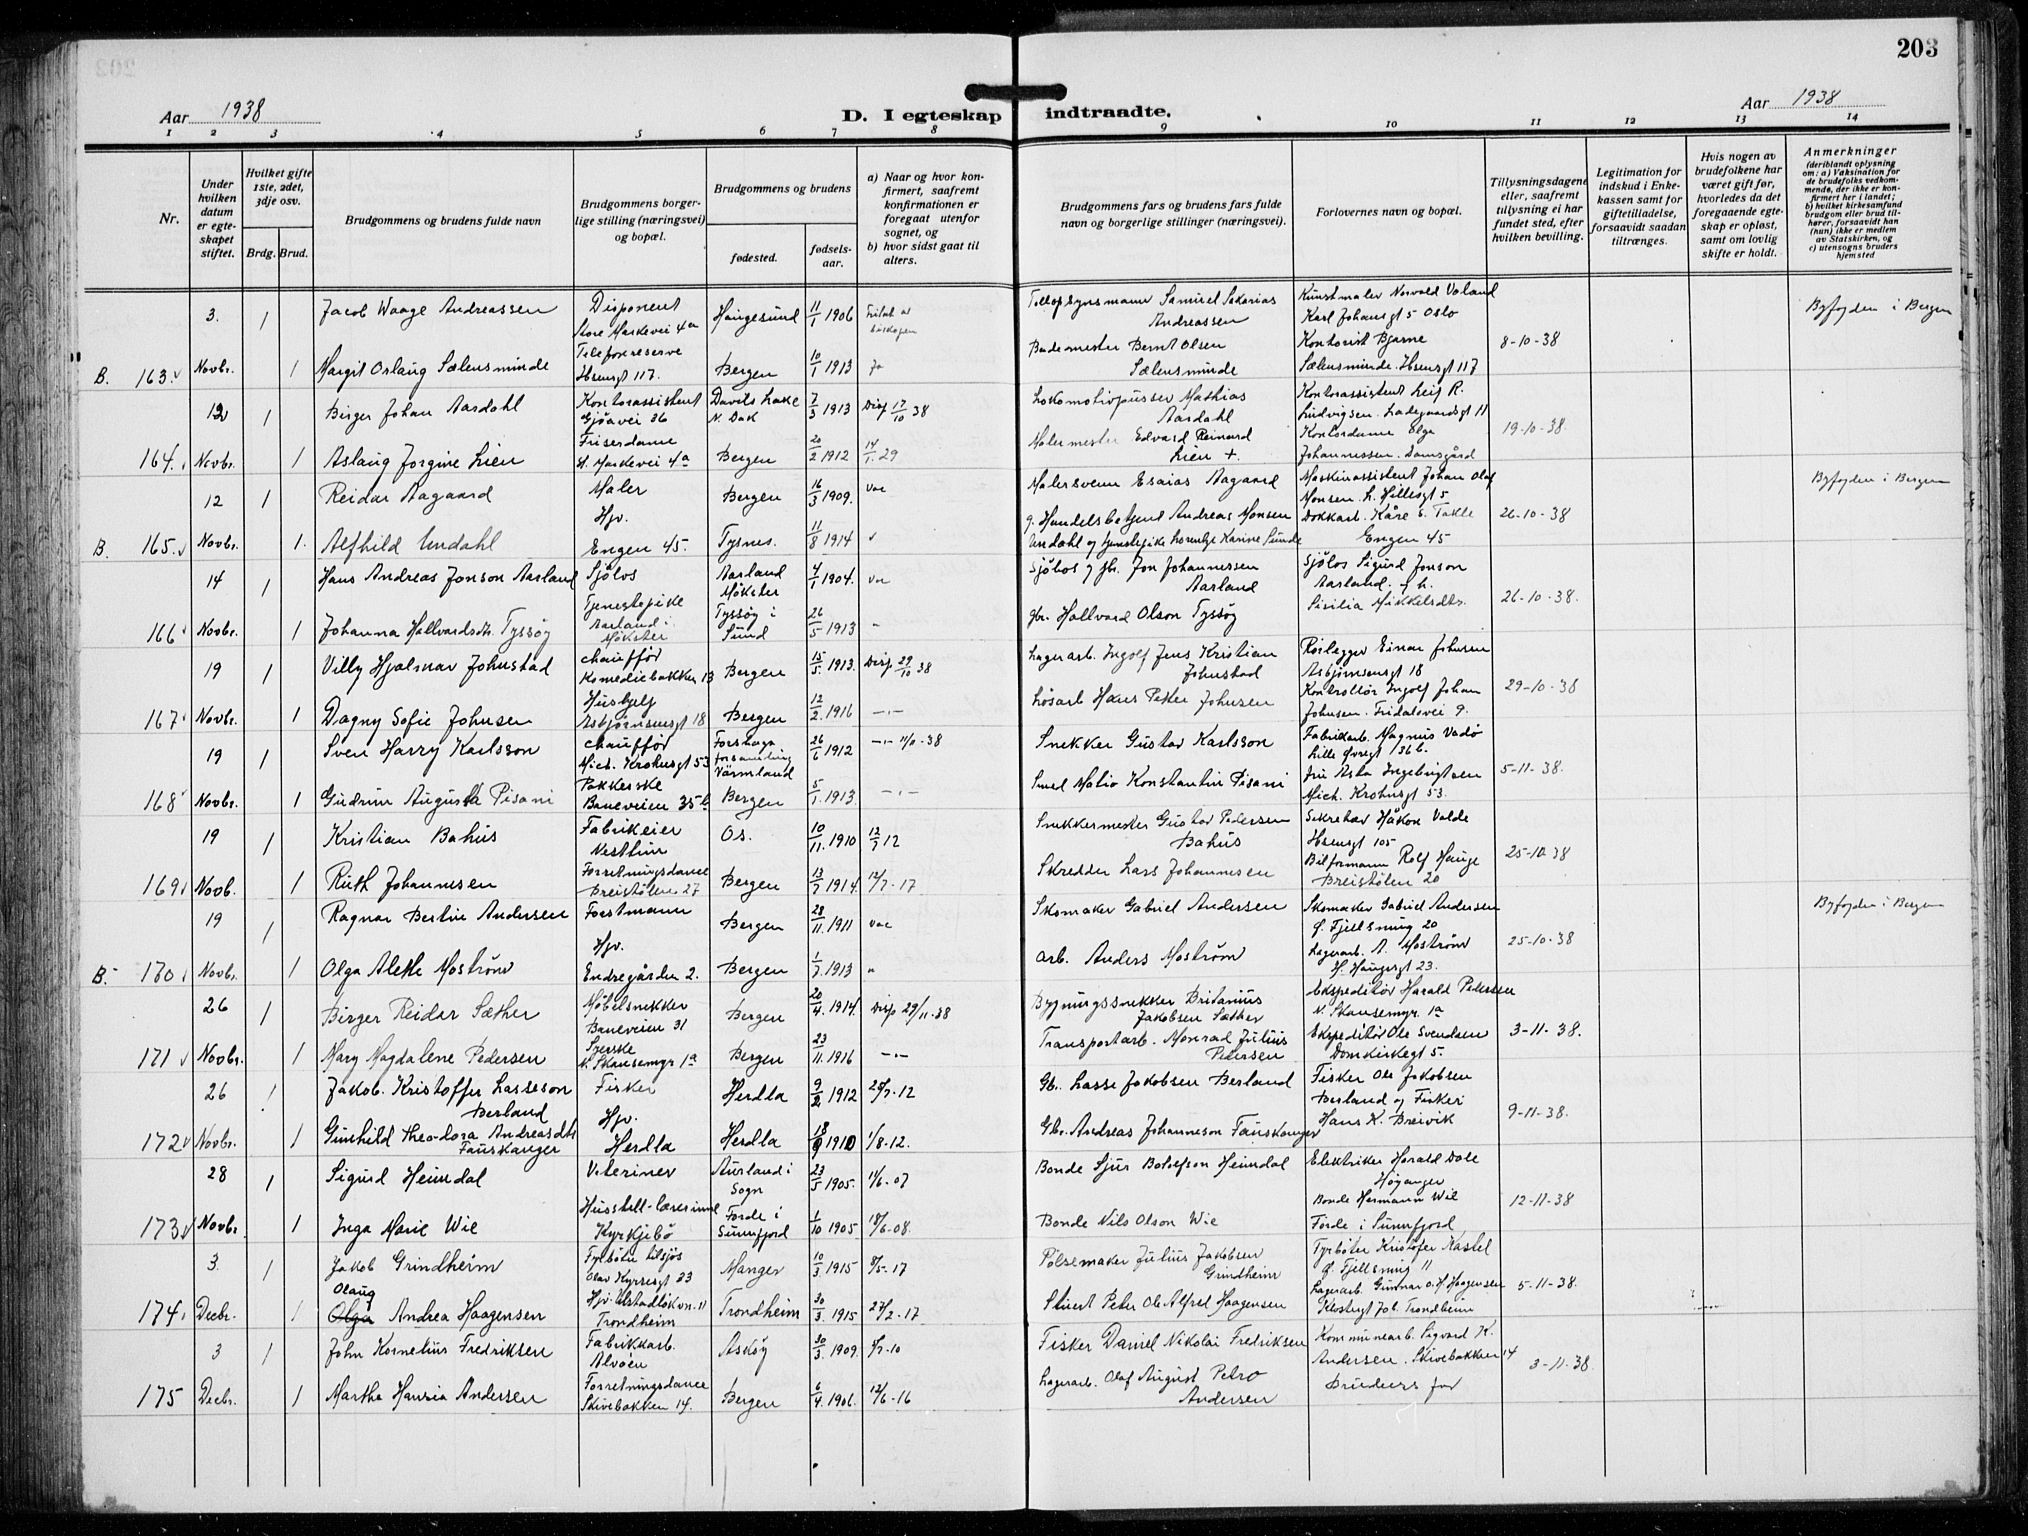 203
Aar 1938
D. I egteskap indtraadte.
Aar 1938
1 2 3 4 5 6 7 8 9 10 11 12 13 14
Nr.
Under hvilken datum er egteskapet stiftet.
Hvilket gifte 1ste, 2det, 3dje osv.
Brdg. Brud.
Brudgommens og brudens fulde navn
Brudgommens borgerlige stilling (næringsvei) og bopæl.
Brudgommens og brudens
fødested.
fødselsaar.
a) Naar og hvor konfirmert, saafremt konfirmationen er foregaat utenfor sognet, og
b) hvor sidst gaat til alters.
Brudgommens fars og brudens fars fulde navn og borgerlige stillinger (næringsvei).
Forlovernes navn og bopæl.
Tillysningsdagene eller, saafremt tillysning ei har fundet sted, efter hvilken bevilling.
Legitimation for indskud i Enkekassen samt for giftetilladelse, forsaavidt saadan tiltrænges.
Hvis nogen av brudefolkene har været gift før, hvorledes da det foregaaende egteskap er opløst, samt om lovlig skifte er holdt.
Anmerkninger
(deriblandt oplysning om: a) Vaksination for de brudefolks vedkommende, der ikke er konfirmert her i landet; b) hvilket kirkesamfund brudgom eller brud tilhører, forsaavidt han (hun) ikke er medlem av Statskirken, og c) utensogns bruders hjemsted
3. 1 Jacob Waage Andreassen Disponent Store Markevei 4a Haugesund 11/1 1906
Tollopsynsmann Samuel Sakarias Andreassen Kunstmaler Norvald Valand Karl Johansgt 5 Oslo
8-10-38 Byfogden i Bergen
B. 163. Novbr. 1 Margit Oslaug Sælensminde Telefonreserve Hsensgt 117. Bergen 10/1 1913
Bademester Bernt Olsen Sælensminde Kontorist Bjarne Sælensminde. Hsensgt 117
12 1 Birger Johan Aardahl Kontorassistent Gjøavei 36 Davils Lake N. Dak 7/3 1913 Disp 17/10 38
Lokomotivpusser Mathias Aardahl Kontorassistent Leif R. Ludvigsen. Ladegaardsgt 11
19-10-38.
164. Novbr. 1 Aslaug Jorgine Lien Friserdame St. Markevei 4a Bergen 20/2 1912 14/1. 29
Malermester Edvard Reinard Lien +. Kontordame Olga Johannessen. Damsgård
12 1 Reidar Aagaard Maler Hjv. Bergen 16/3 1909. vac
Malersvenn Esaias Aagaard Maskinassistent Johan Olaf Monsen. L. Hillesgt 5
26-10-38 Byfogden i Bergen
B. 165. Novbr. 1. Alfhild Undahl Engen 45. Tysnes. 11/8 1914
g. Handelsbetjent Andreas Monsen Undahl og tjenestepike Lorentze Karine Sunde Dokkarb. Kåre S. Takle Engen 45
14 1 Hans Andreas Jonson Aarland Sjølos Aarland Møkster 4/1 1904. vac
Sjølos og gbr. Jon Johannessen Aarland Sjølos Sigurd Jonson Aarland. g. h.
26-10-38.
166 Novbr. 1 Johanna Hallvardsdtr. Tyssøy Tjenestepike Aarland i Møkster Tyssøy i Sund 26/5 1913 -
gbr. Hallvard Olson Tyssøy Sisilia Mikkelsdtr.
19 1 Villy Hjalmar Johnstad chauffør Komediebakken 13 Bergen 15/5. 1913. Disp 29/10 38
Lagerarb. Ingolf Jens Kristian Johnstad Rørlegger Einar Johnsen Asbjørnsensgt 18
29-10-38
167 Novbr. 1 Dagny Sofie Johnsen Hushjelp Asbjørnsensgt 18 Bergen 12/2. 1916 -"-
Løsarb Hans Petter Johnsen Kontrollør Ingolf Johan Johnsen. Fridalsvei 9.
19 1 Sven Harry Karlsson chauffør Mich. Krohnsgt 53 Forshaga forsamling Värmland 26/6 1912 -"- 11/11-38
Snekker Gustav Karlsson Fabrikarb. Magnus Vadø Lille Øvregt 36 b.
5-11-38.
168 Novbr. 1 Gudrun Augusta Pisani Pakkerske Baneveien 35b Bergen 5/1. 1913. -"-
Smed Matio Konstantin Pisani Fru Asta Ingebrigtsen Mich. Krohnsgt 53.
19 1 Kristian Bahus Fabrikeier Nesttun Os. 10/11. 1910 12/7 12
Snekkermester Gustav Pedersen Bahus Sekretær Håkon Valde Hsensgt 105
25-10-38
169 Novb. 1 Ruth Johannesen Forretningsdame Breistølen 27 Bergen 13/7 1914. 12/7-17
Skredder Lars Johannesen Bilformann Rolf Hauge Breistølen 20
19 1 Ragnar Bertin Andersen Forstmann Hjv. Bergen 28/11. 1911 vac
Skomaker Gabriel Andersen Skomaker Gabriel Andersen Ø. Fjellsmug 20
25-10-38 Byfogden i Bergen
B. 170. Novbr. 1 Olga Alette Moström Endregården 2. Bergen 1/7. 1913 "
Arb. Anders Moström Lagerarb. A. Moström H. Haugesgt 23.
26 1 Birger Reidar Sæther Møbelsnekker Baneveien 31 Bergen 20/4. 1914. Disp 29/11-38
Bygningssnekker Britanius Jakobsen Sæther Ekspeditør Harald Pedersen N. Skansemyr. 1a
3-11-38.
171 Novbr. 1 Mary Magdalene Pedersen Syerske N. Skansemyr 1a Bergen 23/11. 1916 -"-
Transportarb. Monrad Julius Pedersen Ekspeditør Ole Svendsen Domkirkegt 5.
26 1 Jakob. Kristoffer Lasseson Berland Fisker Hjv. Herdla 9/2 1912 20/7-12
Gb. Lasse Jakobsen Berland Fisker Ole Jakobsen Berland og Fisker
9-11-38.
172 Novbr. 1 Gunhild Theodora Andreasdtr Fauskanger Herdla Herdla 18/9 1910 1/8-12.
Gbr. Andreas Johanneson Fauskanger Hans K. Breivik
28 1 Sigurd Heimdal Veterinær Aurland i Sogn 23/5 1905. 11/6-07
Bonde Sjur Botolfson Heimdal Elektriker Harald Dale Høyanger
12-11-38
173 Novbr 1 Inga Marie Wie Husstell-lærerinne Kyrkjebø Førde i Sunnfjord 1/10 1905 18/6-08
Bonde Nils Olson Wie Bonde Hermann Wie Førde i Sunnfjord
3. 1 Jakob Grindheim Fyrbøter tilsjøs Olav Kyrresgt 23 Manger 10/3. 1915 9/5-17
Pølsemaker Julius Jakobsen Grindheim Fyrbøter Kristofer Kastel Ø. Fjellsmug 11
5-11-38.
174. Decbr. 1 Olaug Olga Andrea Haagensen Trondheim Trondheim 30/3. 1915 27/2-17
Stuert Peter Ole Alfred Haagensen Lagerarb. Gunnar O. H. Haagensen Trondheim
3 1 John Kornelius Fredriksen Fabrikkarb. Alvøen Askøy 30/3. 1909.
Fisker Daniel Nikolai Fredriksen Kommunearb. Sigvard K. Andersen. Skivebakken 14
3-11-38
175 Decbr. 1 Martha Hansia Andersen Forretningsdame Skivebakken 14. Bergen 6/4. 1906. 12/6-16
Lagerarb. Olaf August Petro Andersen Brudens far